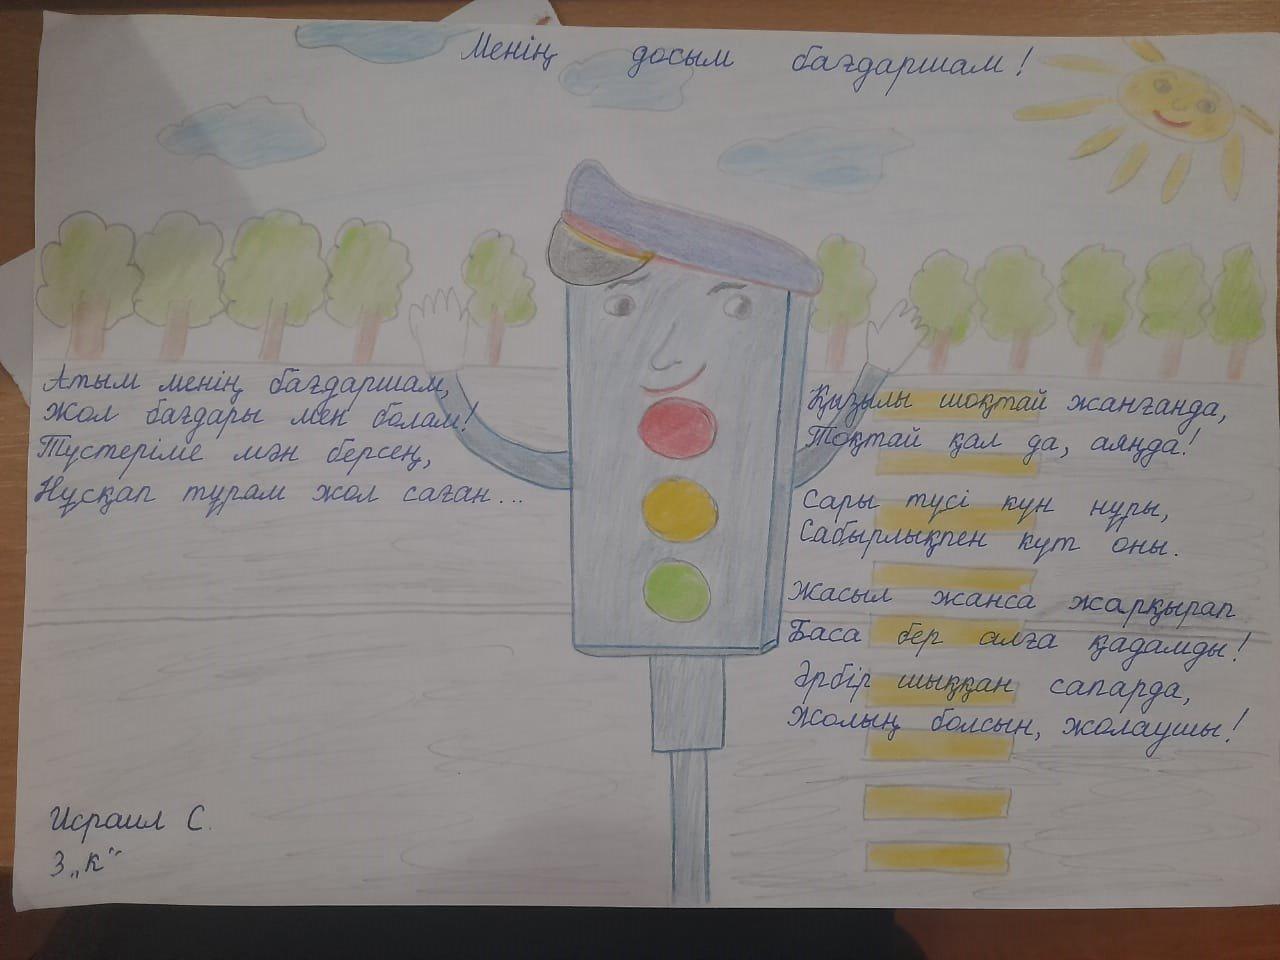 Менің досым бағдаршам!
Атым менің бағдаршам,
Жол бағдары мен болам!
Түстеріме мән берсең,
Нұсқап тұрам жол саған...
Қызылы шоқтай жанғанда,
Тоқтай қал да, аяңда!
Сары түсі күн нұры,
Сабырлықпен күт оны.
Жасыл жанса жарқырап
Баса бер алға қадамды!
Әрбір шыққан сапарда,
Жолың болсын, жолаушы!
Исраил С.
3 „К“